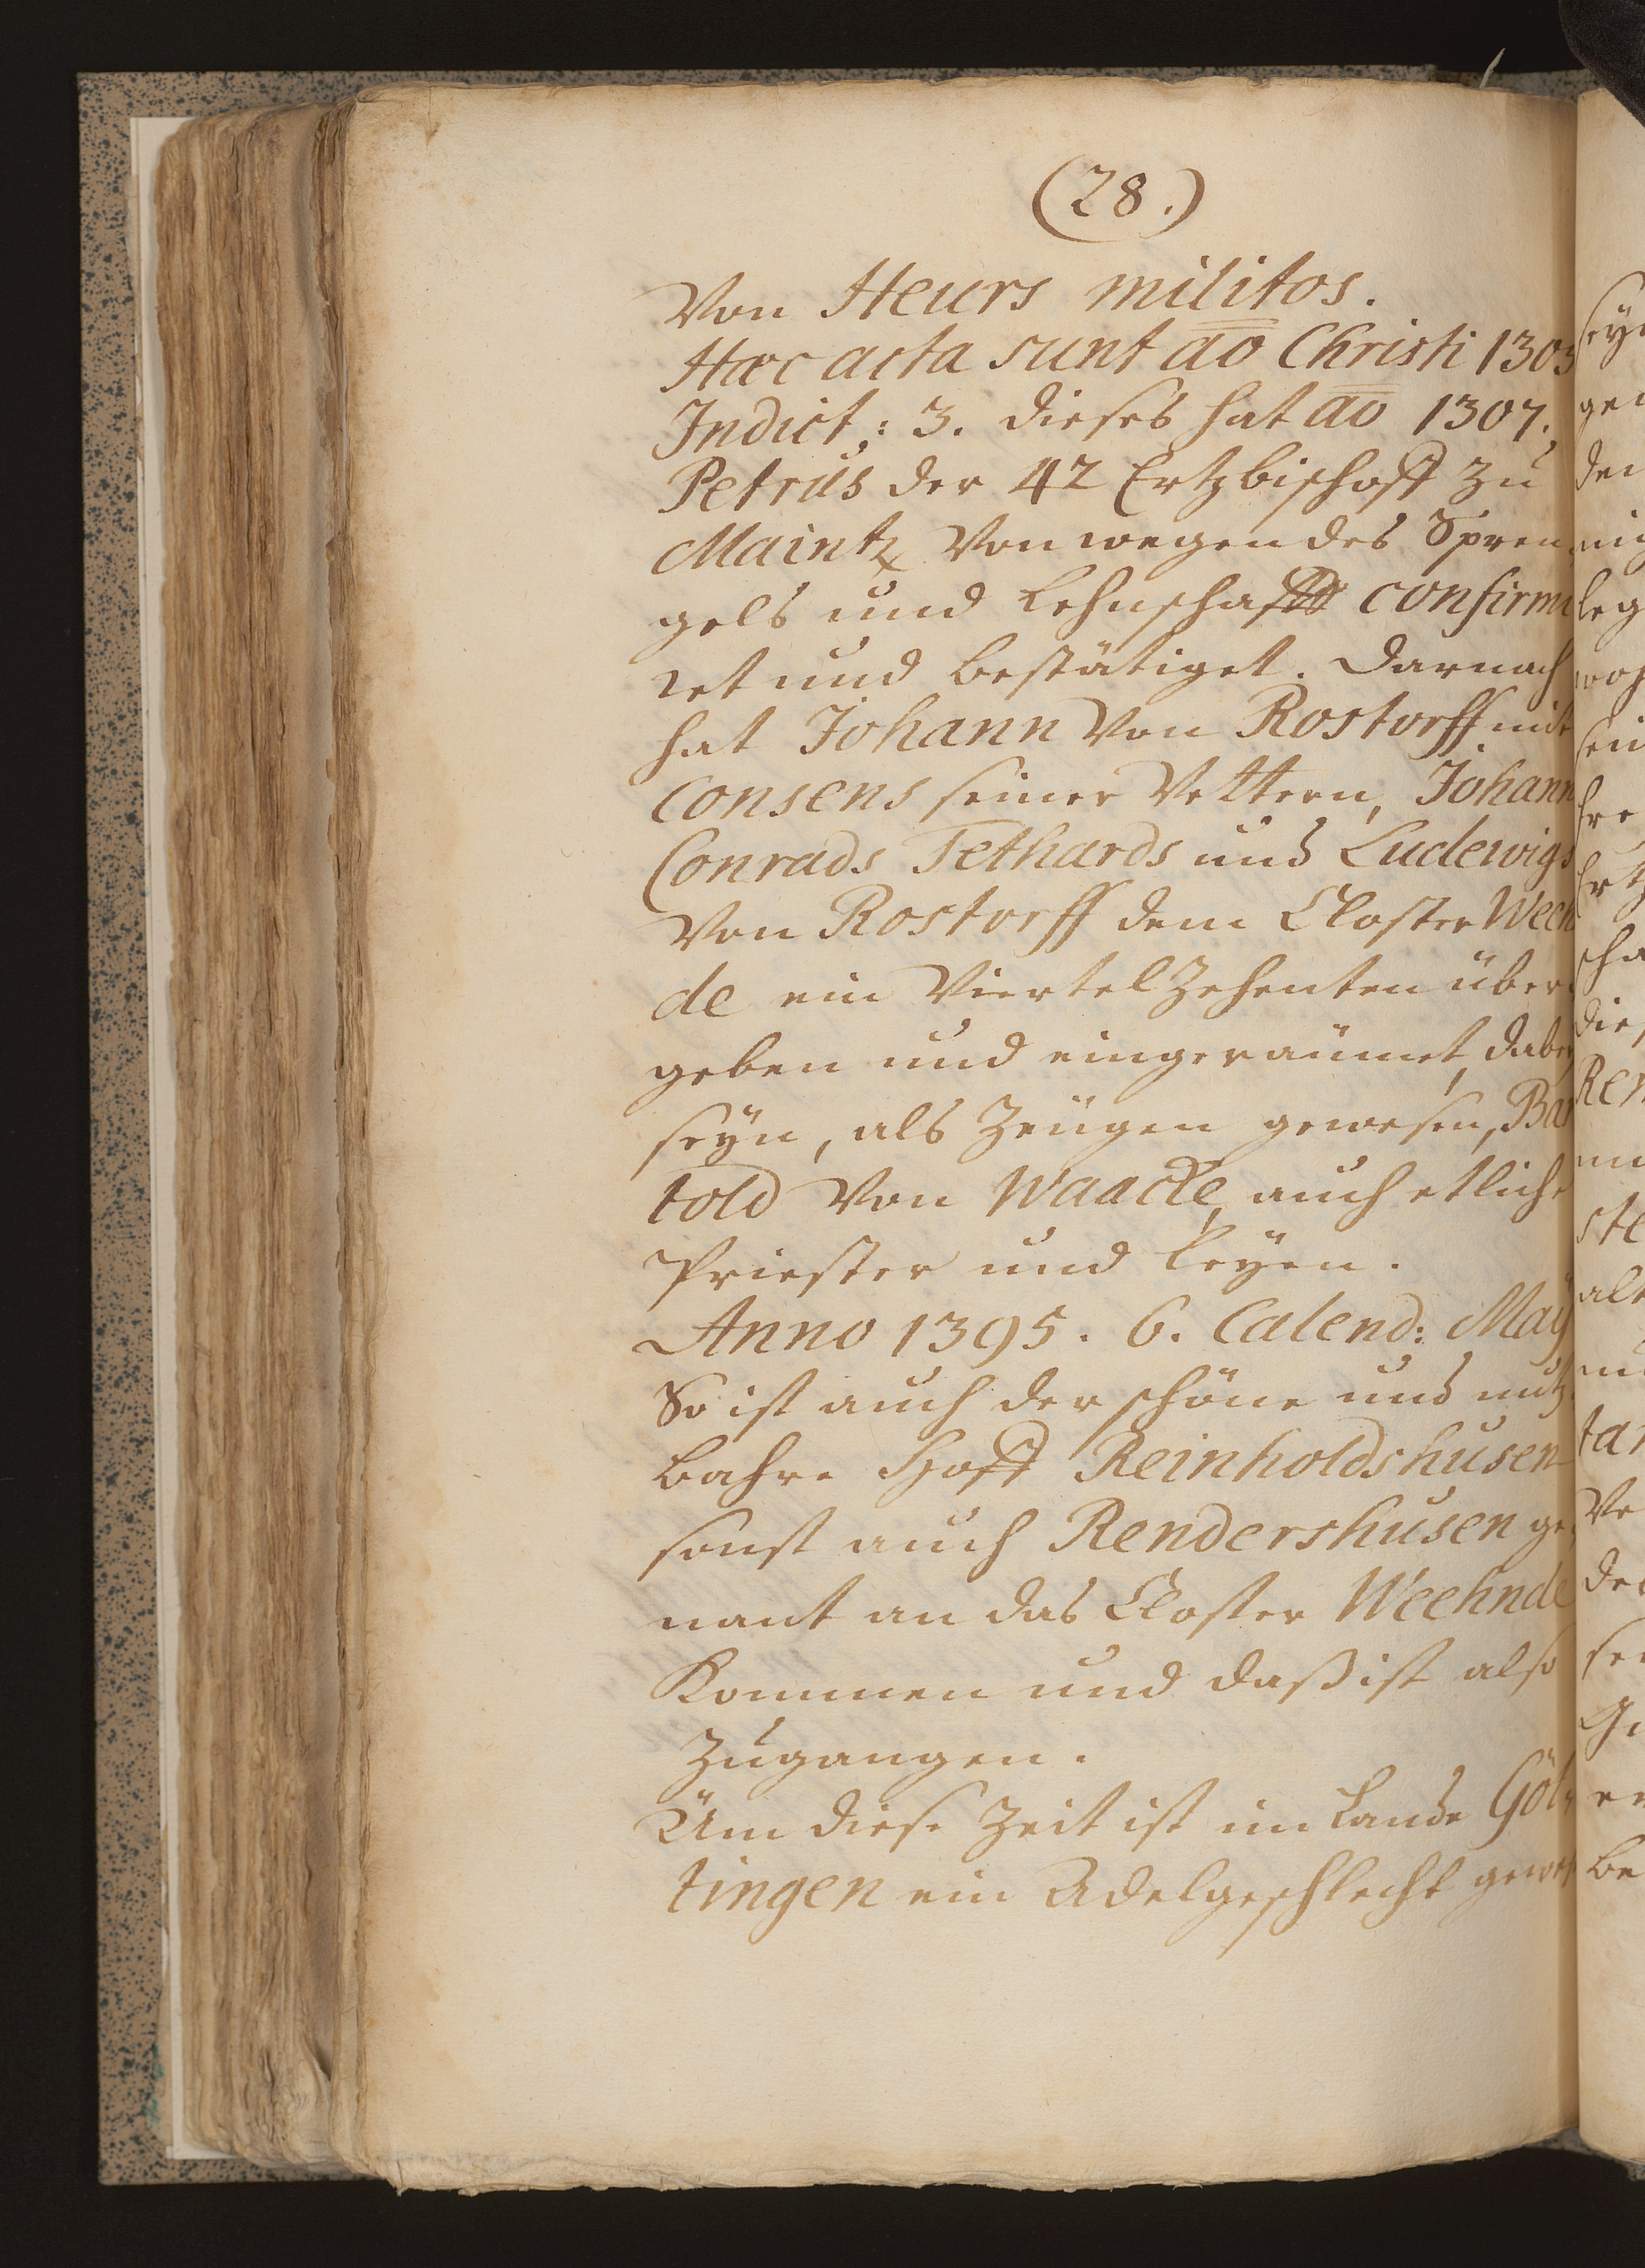 (28.)
Von Heurs militos.
Hæc acta sunt aō Christi 1303
Indict: 3. dieses hat aō 1307.
Petrus der 42 Ertzbischoff zu
Maintz Von wegen des Spren
gels und Lehnschafft confirmi
ret und bestätiget. Darnach
hat Johann Von Rostorff mit
Consens seiner Vettern, Johann
Conrads Tethards und Ludewigs
Von Rostorff dem Closter Ween
de ein Viertel Zehenten über
geben und eingeräumet, dabey
seyn, als Zeugen gewesen, Bar
told Von Waacke, auch etliche
Priester und Leyen.
Anno 1395. 6. Calend: Maÿ
So ist auch der schöne und nutz
bahre Hoff Reinholdshusen
sonst auch Rendershusen ge
nant an das Closter Weehnde
Kommen und daß ist also
Zugangen.
Um diese Zeit ist im Lande Göt
tingen ein Adelgeschlecht gewes